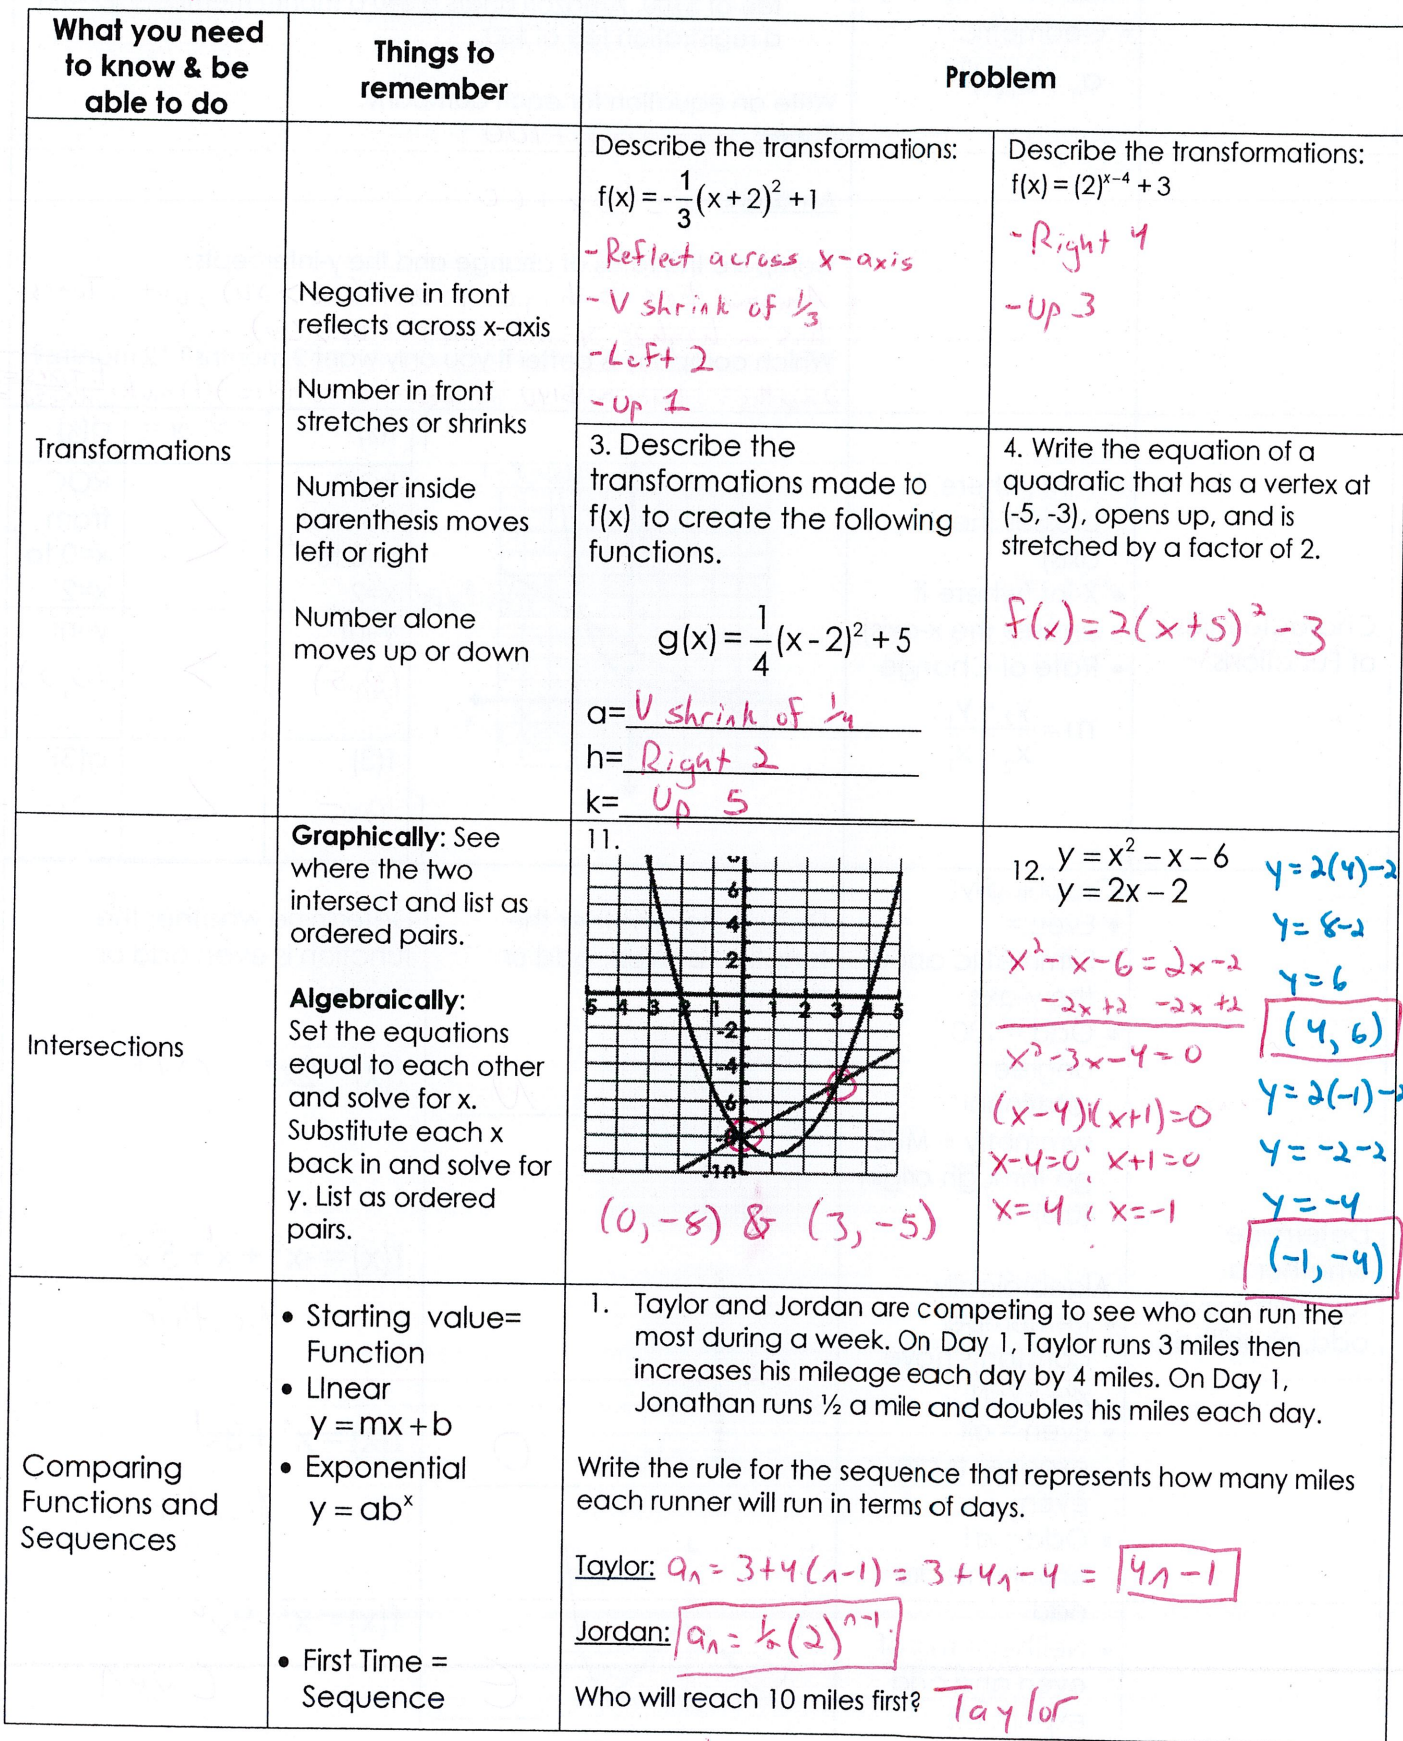 What you need
to know & be
able to do
Things to
remember
Problem
Transformations
Negative in front
reflects across x-axis
Number in front
stretches or shrinks
Number inside
parenthesis moves
left or right
Number alone
moves up or down
Describe the transformations:
f(x) = -1/3(x+2)² + 1
- Reflect across x-axis
- V shrink of 1/3
- Left 2
- Up 1
Describe the transformations:
f(x) = (2)^(x-4) + 3
- Right 4
- Up 3
3. Describe the
transformations made to
f(x) to create the following
functions.
g(x) = 1/4(x-2)² + 5
a= V shrink of 1/4
h= Right 2
k= Up 5
4. Write the equation of a
quadratic that has a vertex at
(-5, -3), opens up, and is
stretched by a factor of 2.
f(x) = 2(x+5)² - 3
Intersections
Graphically: See
where the two
intersect and list as
ordered pairs.
Algebraically:
Set the equations
equal to each other
and solve for x.
Substitute each x
back in and solve for
y. List as ordered
pairs.
11.
6
4
2
5 -4 -3 -2 -1 1 2 3 4 5
-2
-4
-6
-8
-10
(0, -8) & (3, -5)
12. y = x² - x - 6
y = 2x - 2
x² - x - 6 = 2x - 2
-2x +2 -2x +2
x² - 3x - 4 = 0
(x-4)(x+1)=0
x-4=0 x+1=0
x=4 x=-1
y=2(4)-2
y=8-2
y=6
(4, 6)
y=2(-1)-2
y=-2-2
y=-4
(-1, -4)
Comparing
Functions and
Sequences
• Starting value=
Function
• LInear
y = mx + b
• Exponential
y = ab^x
• First Time =
Sequence
1. Taylor and Jordan are competing to see who can run the
most during a week. On Day 1, Taylor runs 3 miles then
increases his mileage each day by 4 miles. On Day 1,
Jonathan runs ½ a mile and doubles his miles each day.
Write the rule for the sequence that represents how many miles
each runner will run in terms of days.
Taylor: aₙ = 3+4(n-1) = 3+4n-4 = 4n-1
Jordan: aₙ = 1/2(2)^(n-1)
Who will reach 10 miles first? Taylor